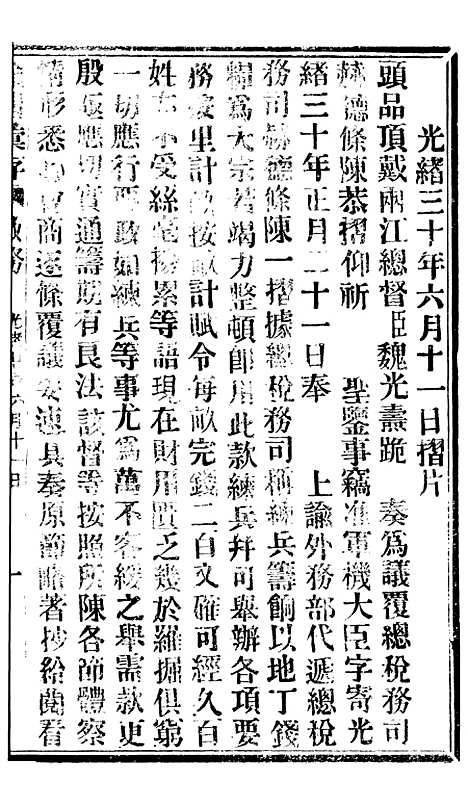 光緒三十年六月十一日摺片
頭品頂戴兩江總督臣魏光燾跪　奏為議覆總稅務司
赫德條陳恭摺仰祈　聖鑒事竊准軍機大臣字寄光
緒三十年正月二十一日奉　上諭外務部代遞總稅
務司赫德條陳一摺據總稅務司稱練兵籌餉以地丁錢
糧為大宗若竭力整頓即用此款練兵并可舉辦各項要
務按里計畝按畝計賦令每畝完錢二百文確可經久百
姓亦不受絲毫擾累等語現在財用匱乏幾於羅掘俱窮
一切應行要政如練兵等事尤為萬不容緩之舉需款更
殷亟應切實通籌期有良法該督等按照所陳各節體察
情形悉心會商逐條覆議妥速具奏原節略著抄給閱看
彙存　政務　六月十一日　一